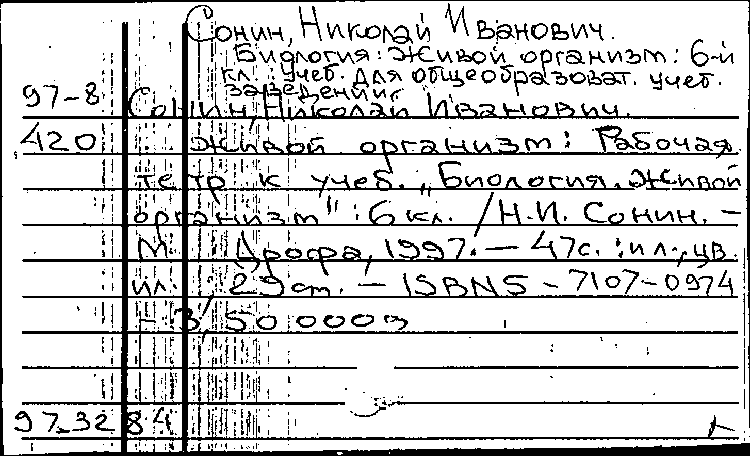 Сонин, Николай Иванович.
Биология: Живой организм: 6-й
кл.: учеб. для общеобразоват. учеб.
заведений.
97-8 Сонин, Николай Иванович.
420 Живой организм: Рабочая
тетр к учеб. „Биология. Живой
организм" : 6 кл. / Н.И. Сонин. –
М Дрофа, 1997. – 47с. : ил., цв.
ил. 29 см. – ISBN 5 – 7107–0974
– 3, 50 000 э
97-3284